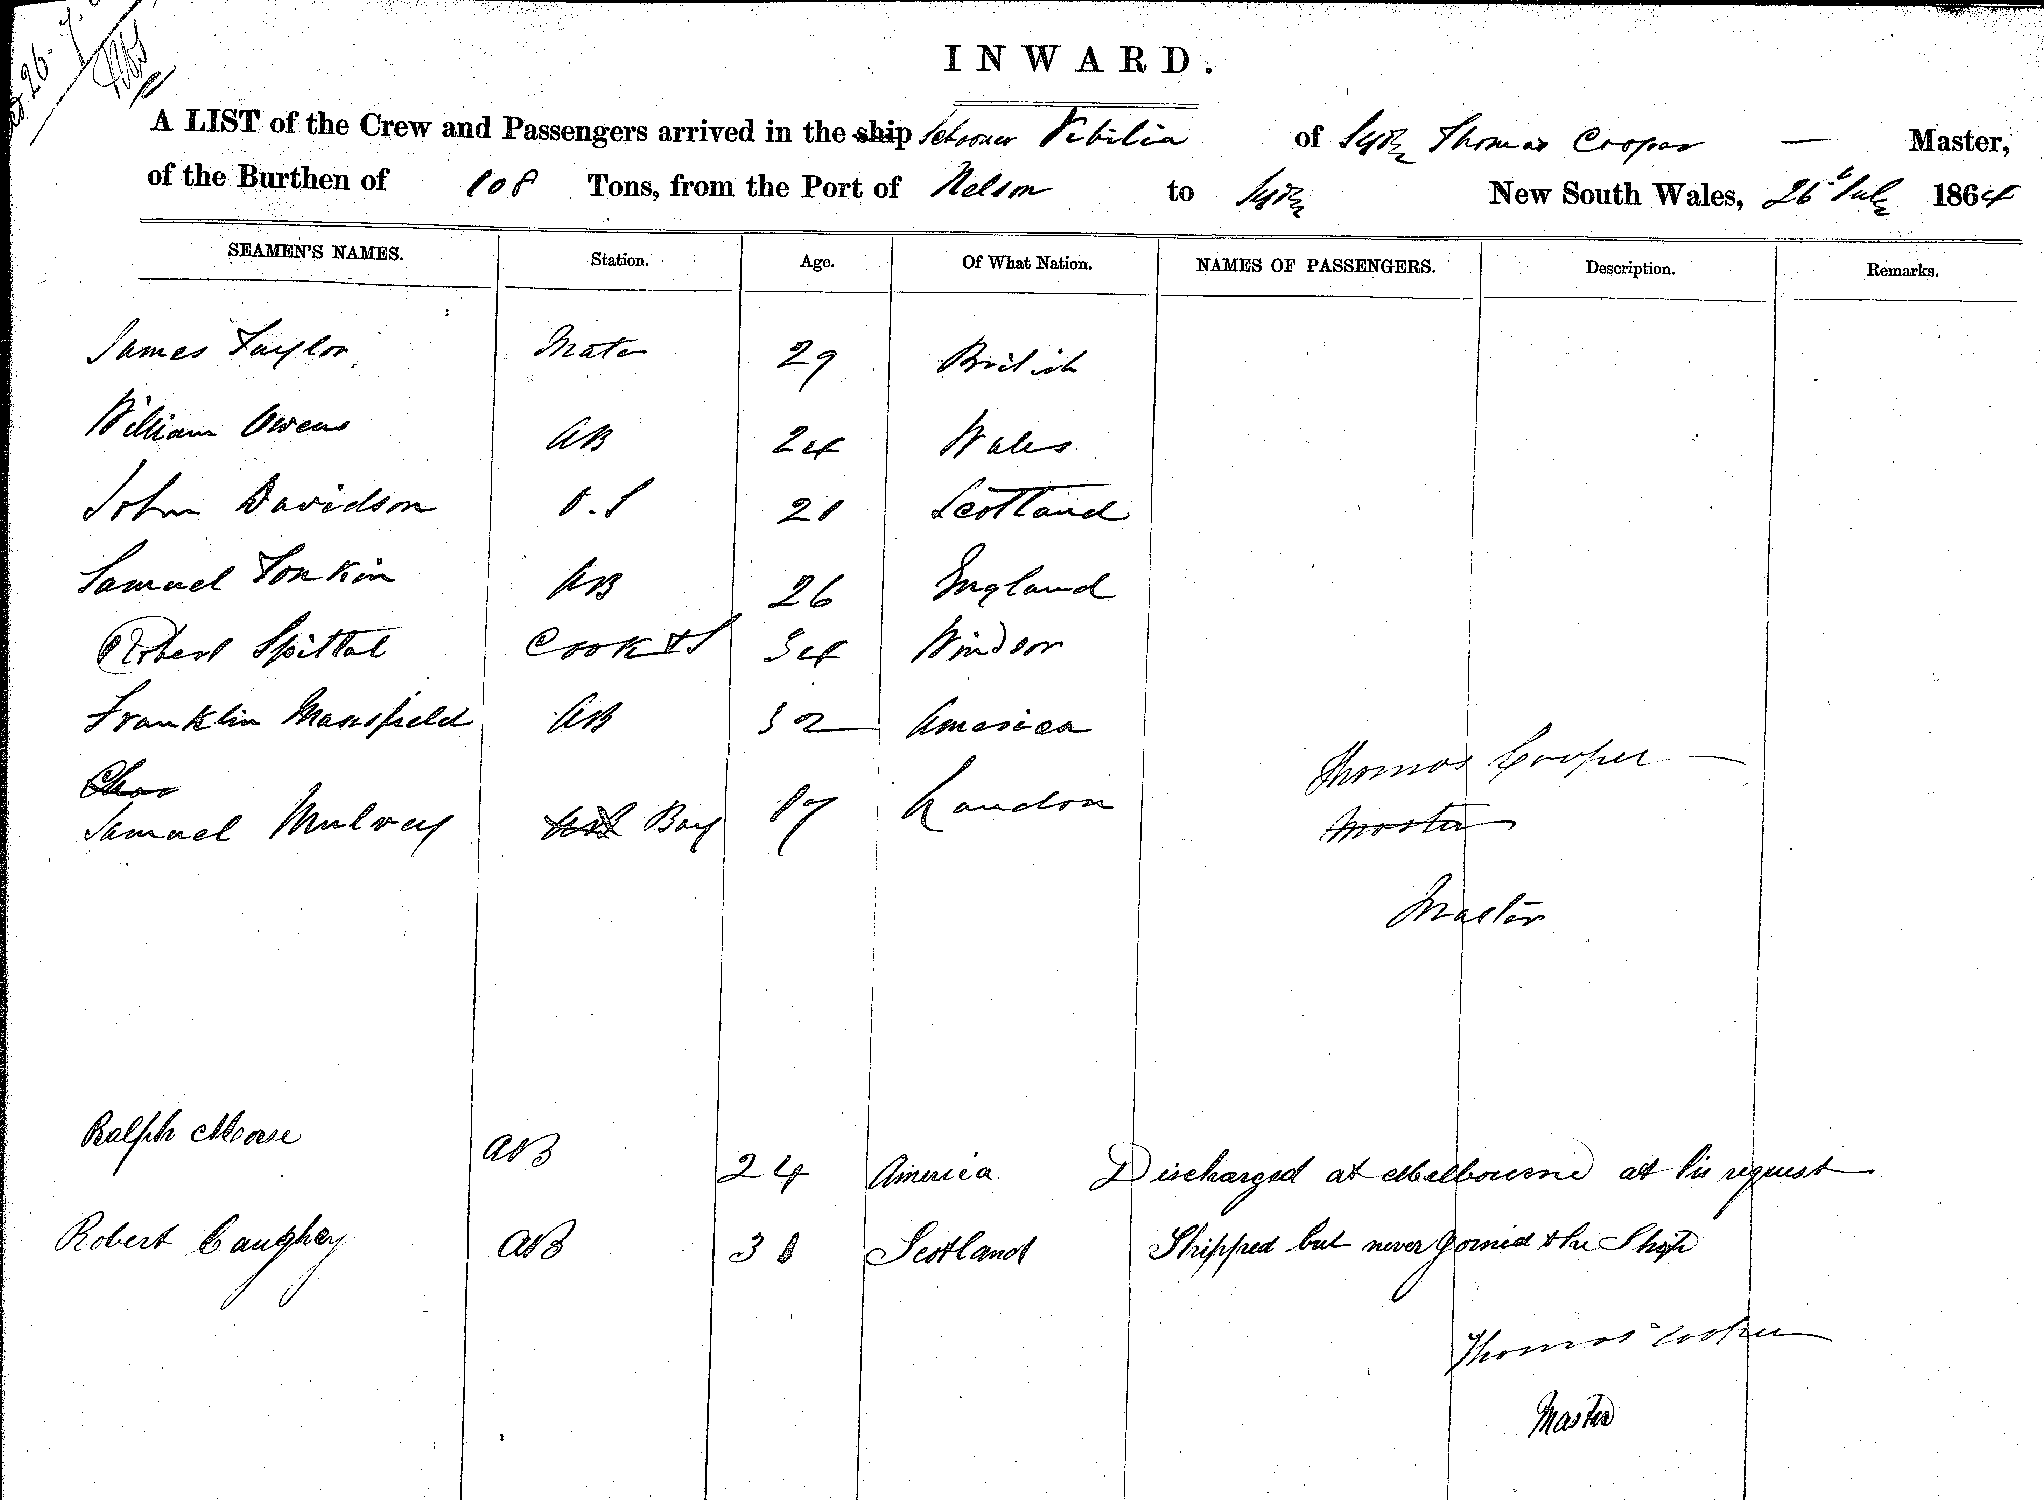 26
INWARD.
A LIST of the Crew and Passengers arrived in the ship Schooner Vibilia of Sydy Thomas Cooper — Master,
of the Burthen of 108 Tons, from the Port of Nelson to Sydy New South Wales, 26th July 1864
SEAMEN'S NAMES. Station. Age. Of What Nation. NAMES OF PASSENGERS. Description. Remarks.
James Taylor Mate 29 British
William Owens AB 24 Wales
John Davidson O.S 21 Scotland
Samuel Tonkin AB 26 England
Robert Spittal Cook & S 34 Windsor
Franklin Mansfield AB 32 America
Thomas Cooper —
Chas
Samuel Mulvey Boy 17 Laudon
Master
Master
Ralph Morse AB 24 America Discharged at Melbourne at his request
Robert Caughey AB 38 Scotland Shipped but never Joined the Ship
Thomas Cooper
Master